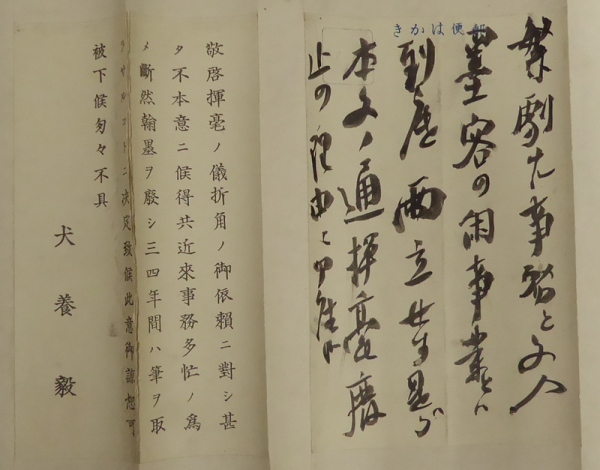 郵便はかき
繁劇ナル事務と文人
墨客の閑事業とハ
到底両立せず是が
本文ノ通揮毫廃
止の理由ニ
敬啓揮毫ノ儀折角ノ御依賴ニ對シ甚
タ不本意ニ候得共近來事務多忙ノ爲
メ斷然翰墨ヲ廢シ三四年間ハ筆ヲ取
ラサルコトニ決定致候此意御諒恕可
被下候匆々不具
犬養毅